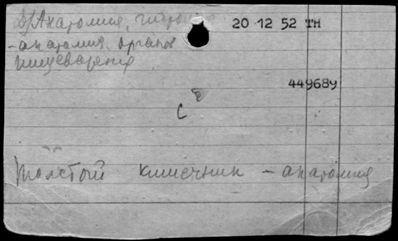 Анатомия, 20 12 52 TH
- анатомия органов
пищеварения
449689
с
толстый кишечник - анатомия